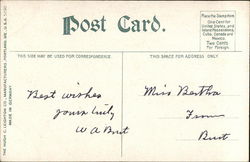 Post Card.
Place the Stamp here
One Cent for
United States and
Island Possessions,
Cuba, Canada and
Mexico.
Two Cents
For Foreign.
THIS SIDE MAY BE USED FOR CORRESPONDENCE
THIS SPACE FOR ADDRESS ONLY.
THE HUGH C. LEIGHTON CO., MANUFACTURERS, PORTLAND, ME., U.S.A.
MADE IN GERMANY
Best wishes
yours truly
W A Burt
Miss Bertha
From
Burt